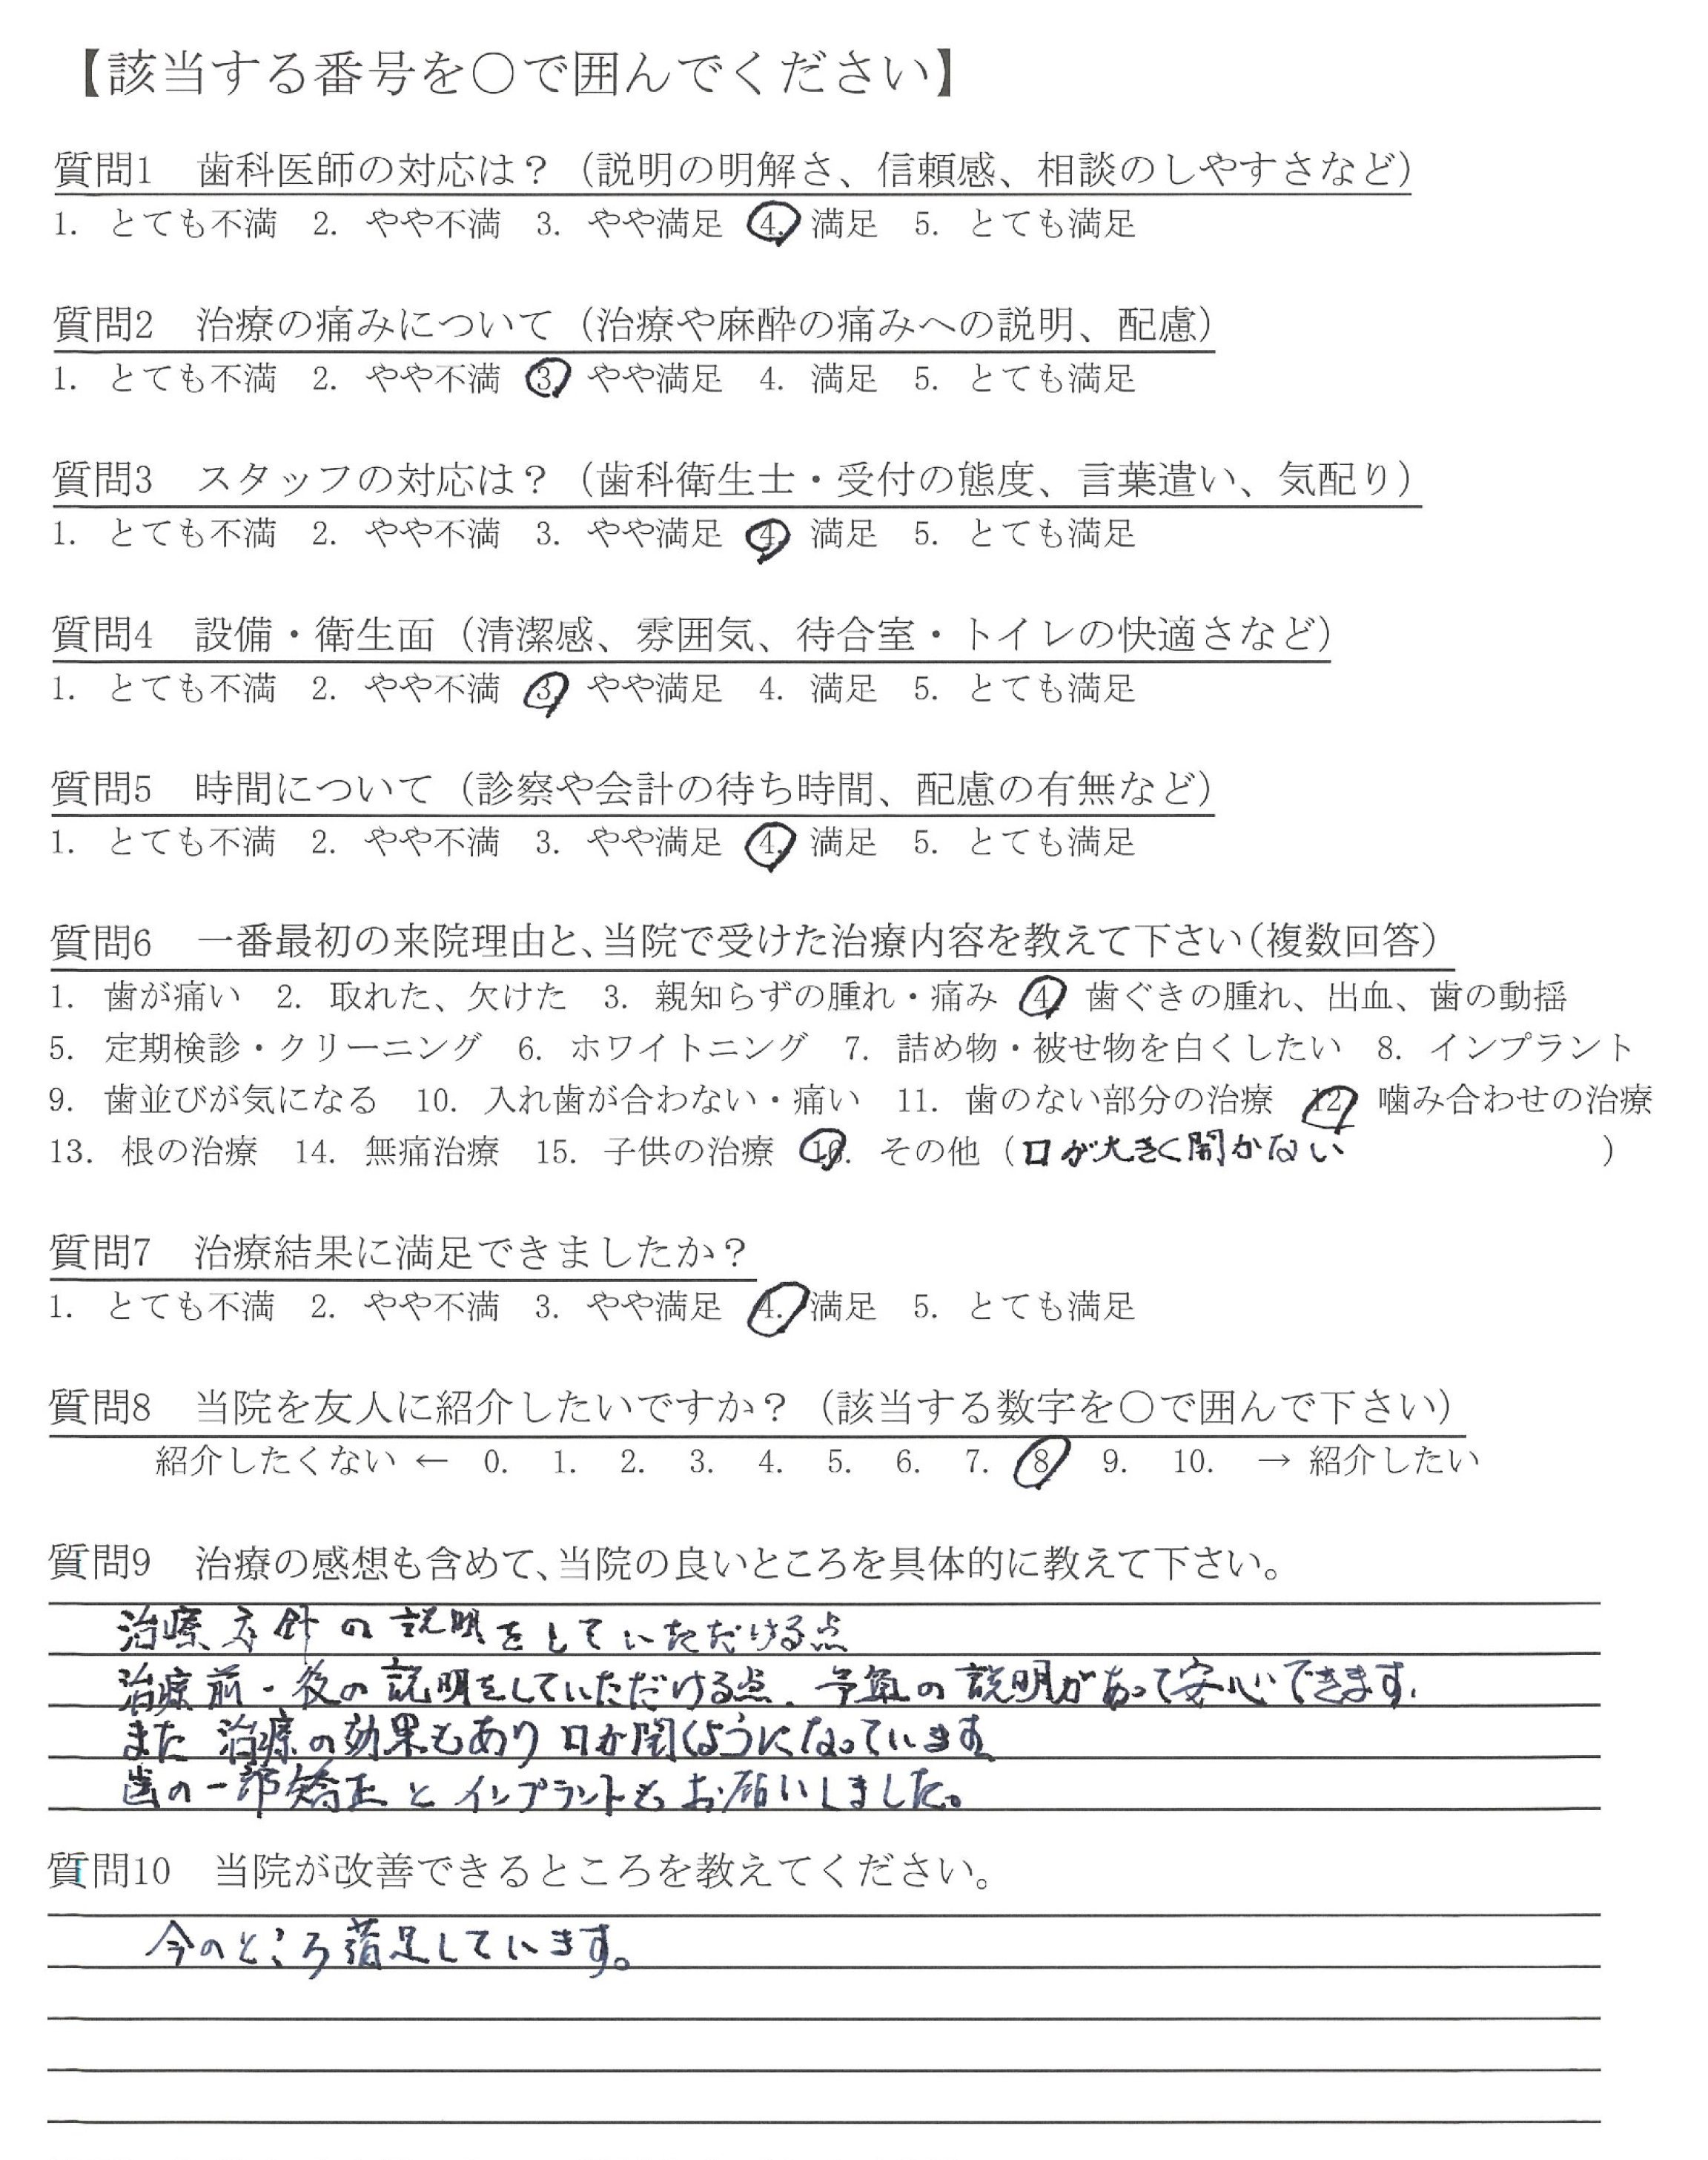 【該当する番号を〇で囲んでください】
質問1 歯科医師の対応は？（説明の明解さ、信頼感、相談のしやすさなど）
1. とても不満 2. やや不満 3. やや満足 4. 満足 5. とても満足
質問2 治療の痛みについて（治療や麻酔の痛みへの説明、配慮）
1. とても不満 2. やや不満 3. やや満足 4. 満足 5. とても満足
質問3 スタッフの対応は？（歯科衛生士・受付の態度、言葉遣い、気配り）
1. とても不満 2. やや不満 3. やや満足 4. 満足 5. とても満足
質問4 設備・衛生面（清潔感、雰囲気、待合室・トイレの快適さなど）
1. とても不満 2. やや不満 3. やや満足 4. 満足 5. とても満足
質問5 時間について（診察や会計の待ち時間、配慮の有無など）
1. とても不満 2. やや不満 3. やや満足 4. 満足 5. とても満足
質問6 一番最初の来院理由と、当院で受けた治療内容を教えて下さい（複数回答）
1. 歯が痛い 2. 取れた、欠けた 3. 親知らずの腫れ・痛み 4. 歯ぐきの腫れ、出血、歯の動揺
5. 定期検診・クリーニング 6. ホワイトニング 7. 詰め物・被せ物を白くしたい 8. インプラント
9. 歯並びが気になる 10. 入れ歯が合わない・痛い 11. 歯のない部分の治療 12. 噛み合わせの治療
13. 根の治療 14. 無痛治療 15. 子供の治療 16. その他（口が大きく開かない）
質問7 治療結果に満足できましたか？
1. とても不満 2. やや不満 3. やや満足 4. 満足 5. とても満足
質問8 当院を友人に紹介したいですか？（該当する数字を〇で囲んで下さい）
紹介したくない ← 0. 1. 2. 3. 4. 5. 6. 7. 8. 9. 10. → 紹介したい
質問9 治療の感想も含めて、当院の良いところを具体的に教えて下さい。
治療方針の説明をしていただける点
治療前・後の説明をしていただける点、予算の説明があって安心できます。
また治療の効果もあり口が開くようになっています
歯の一部矯正とインプラントもお願いしました。
質問10 当院が改善できるところを教えてください。
今のところ満足しています。